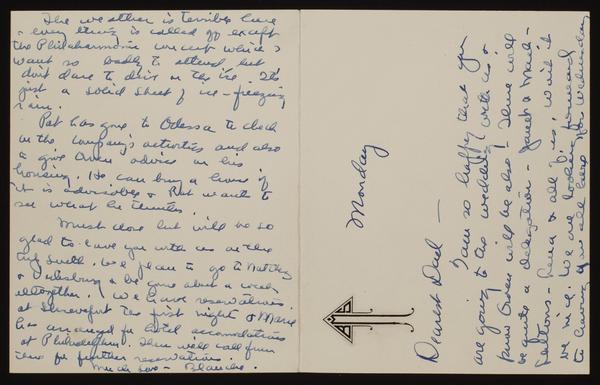 Monday
Dearest Dad —
I am so happy that you
are going to the wedding with us &
know Owen will be also! There will
be quite a delegation - Janet & Mark -
& all of us, will it
be nice. We are looking forward
to having you all here now Wednesday
The weather is terrible here
& every thing is called off except
the Philharmonic concert which I
want so badly to attend but
don't dare to drive on the ice. It's
just a solid sheet of ice - freezing
rain.
Pat has gone to Odessa to check
on the company's activities and also
to give Owen advice on his
housing. He can buy a house if
it is advisable & Pat wants to
see what he thinks.
Must close but will be so
glad to have you with us on the
trip South. We plan to go to Natchez
& Vicksburg & be gone about a week
altogether. We have reservations
at Shreveport the first night & Marie
has arranged for hotel accomodations
at Philadelphia. Then will call from
there for further reservations.
Much love - Blanche.